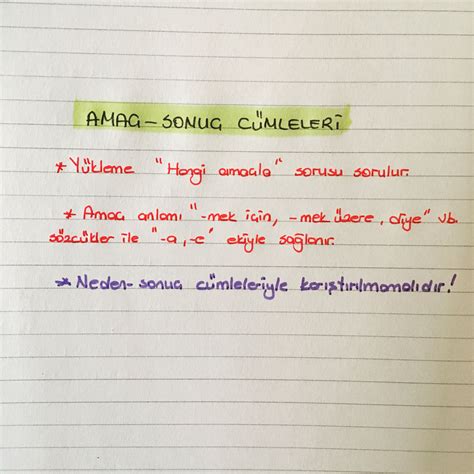 AMAÇ-SONUÇ CÜMLELERİ
* Yükleme "Hangi amaçla" sorusu sorulur.
* Amaç anlamı "-mek için, -mek üzere, diye" vb.
sözcükler ile "-a, -e" ekiyle sağlanır.
* Neden-sonuç cümleleriyle karıştırılmamalıdır!